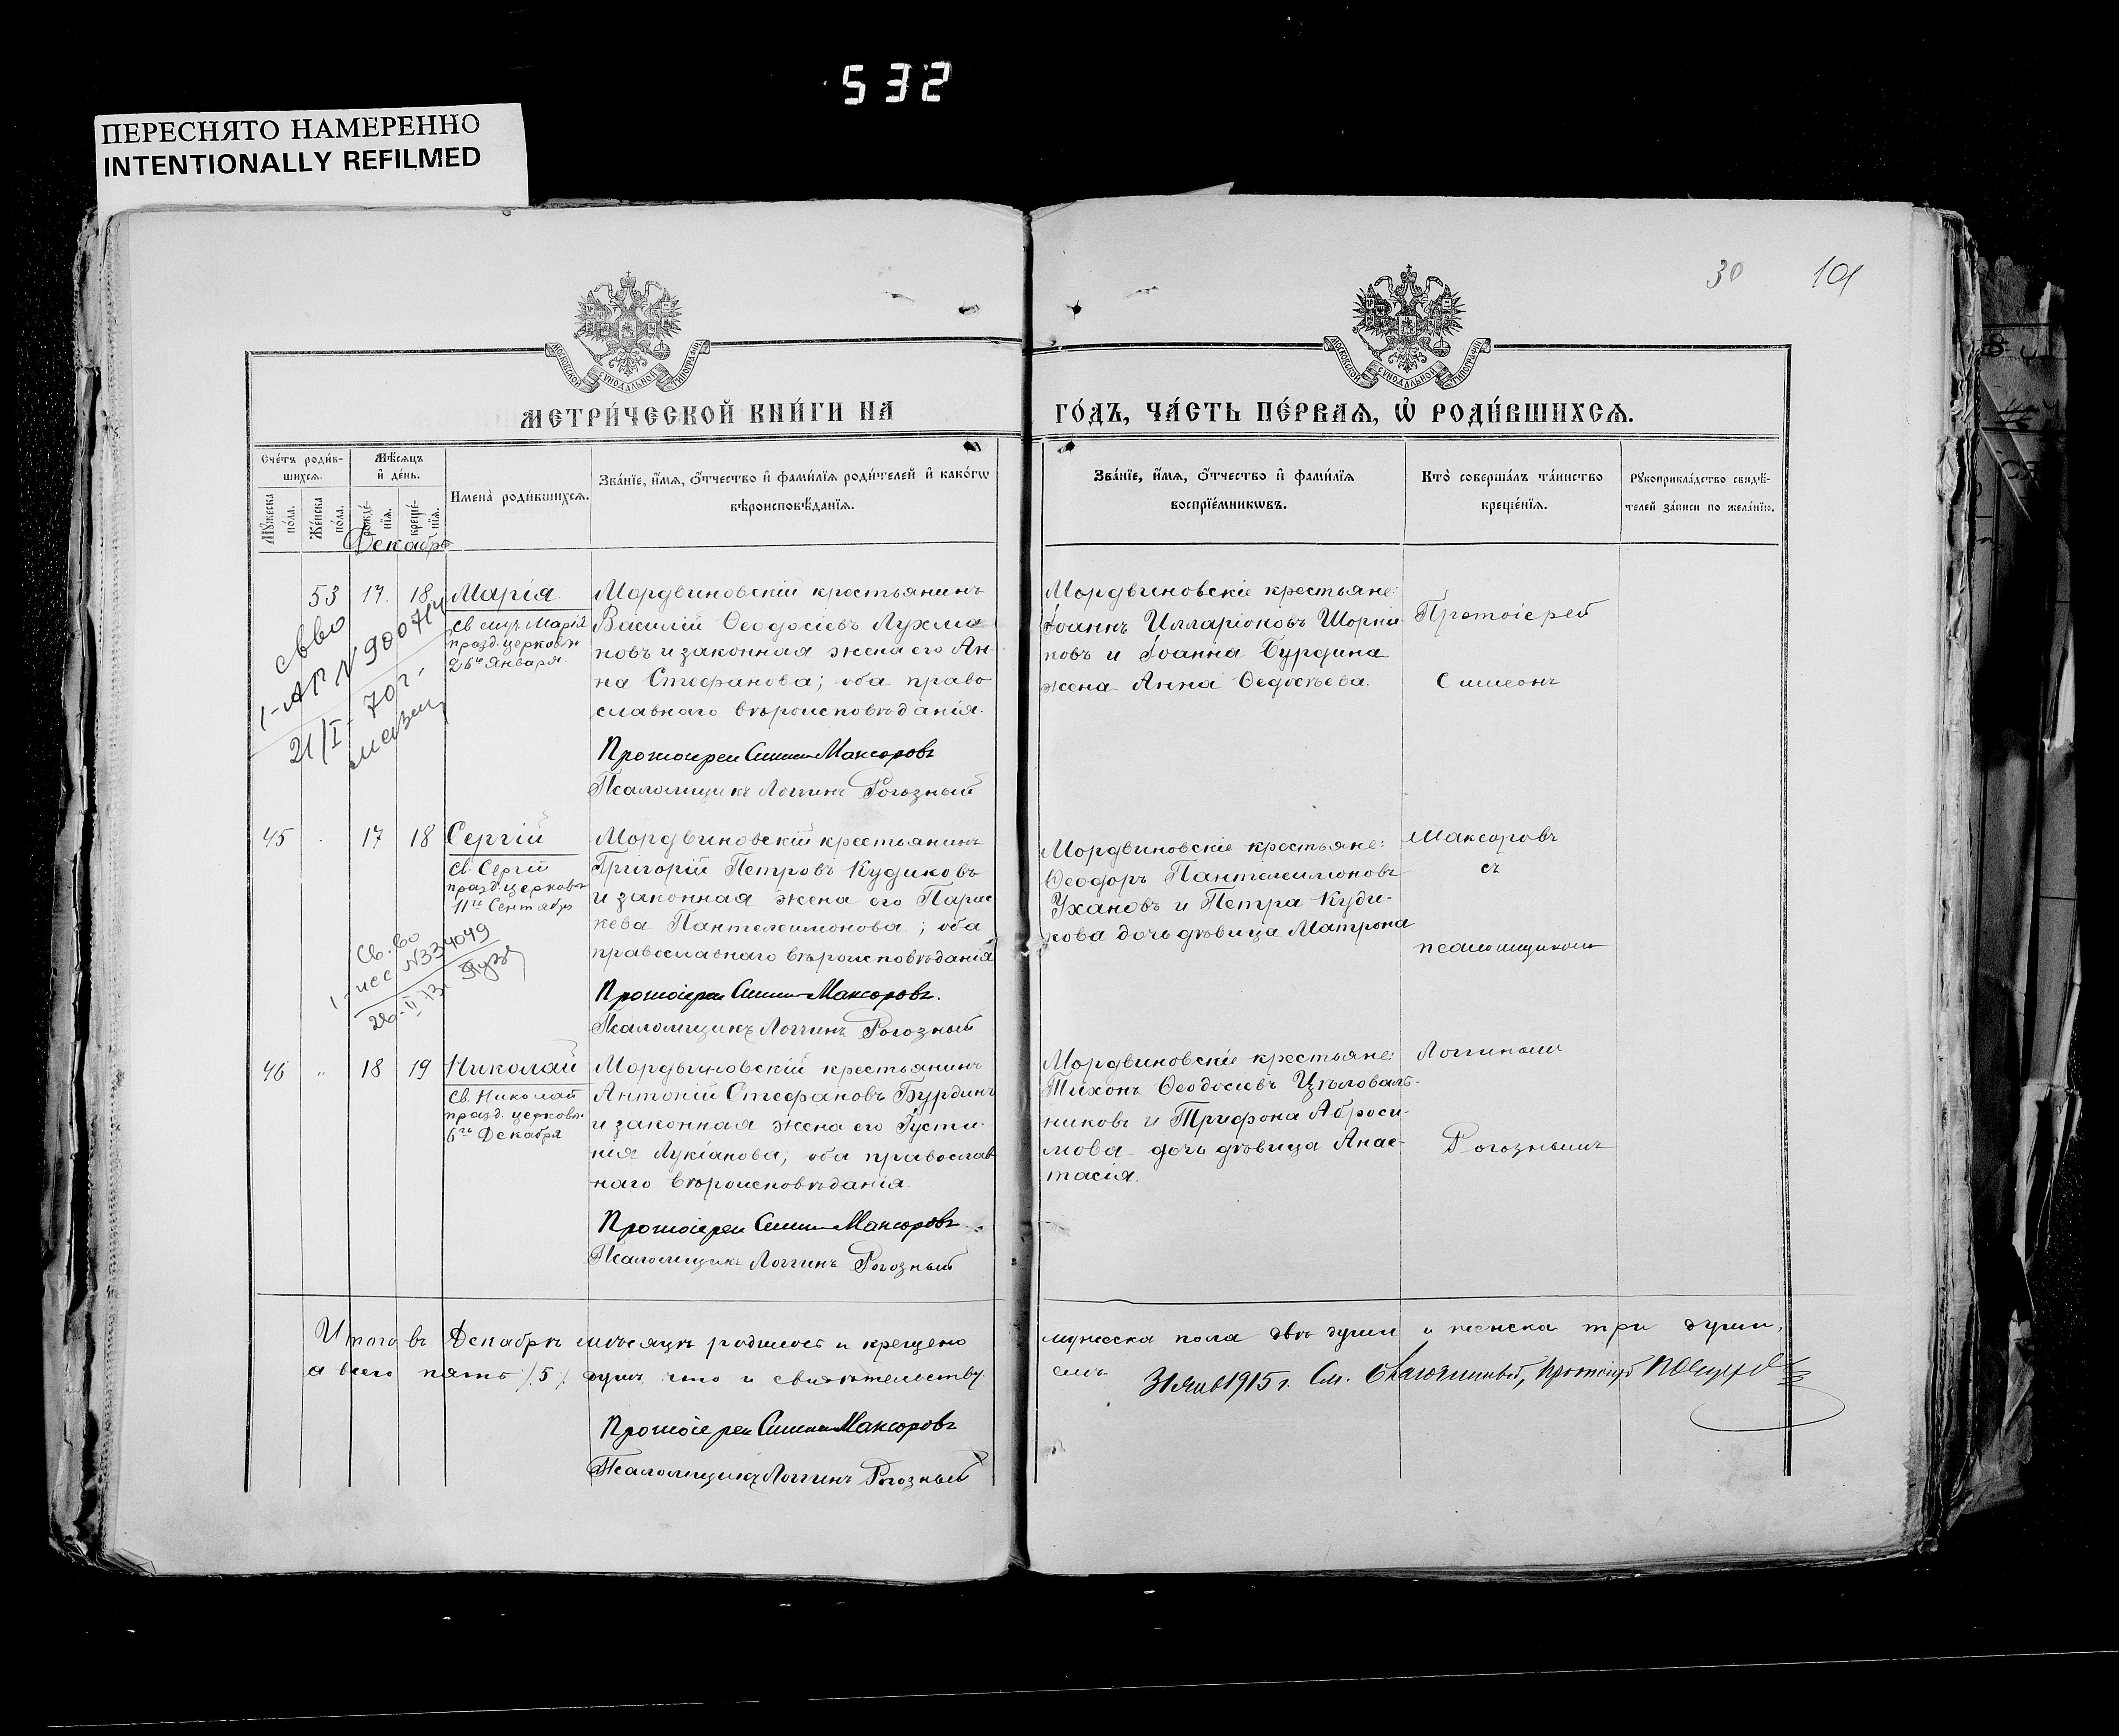 532
ПЕРЕСНЯТО НАМЕРЕННО
INTENTIONALLY REFILMED
30 101
МОСКОВСКОЙ СѴНОДАЛЬНОЙ ТИПОГРАФІИ
МОСКОВСКОЙ СѴНОДАЛЬНОЙ ТИПОГРАФІИ
МЕТРИ́ЧЕСКОЙ КНИ́ГИ НА
ГО́ДЪ, ЧА́СТЬ ПЕ́РВАѦ, Ѡ҆ РОДИ́ВШИХСѦ.
Сче́тъ роди́в-
шихсѧ.
Мѣ́сѧцъ
и҆ де́нь.
Мꙋ́жеска
по́ла.
Же́нска
по́ла.
рожде́-
нїѧ.
креще́-
нїѧ.
Имена̀ роди́вшихсѧ.
Зва́нїе, и҆́мѧ, ѻ҆́тчество и҆ фами́лїѧ роди́телей и҆ како́гѡ
вѣроисповѣ́данїѧ.
Зва́нїе, и҆́мѧ, ѻ҆́тчество и҆ фами́лїѧ
воспрїе́мникѡвъ.
Кто̀ соверша́лъ та́инство
креще́нїѧ.
Рꙋкоприкла́дство свидѣ́-
телей за́писи по жела́нїю.
Декабрь
53 17. 18. Марія
Св. мир. Марія
празд. церковн
26го Января.
Мордвиновскій крестьянинъ
Василій Ѳеодосіевъ Лухма
новъ и законная жена его Ан-
на Стефанова; оба право
славнаго вѣроисповѣданія.
Протоіерей Симеон Максоровъ
Псаломщикъ Логгинъ Рогозный
Мордвиновскіе крестьяне:
Іоаннъ Илларіоновъ Шорни
ковъ и Іоанна Бурдина
жена Анна Ѳедосѣева.
Протоіерей
Симеонъ
СВВО
I-АП N 900714
21/I- 70г.
45 17 18 Сергій
Св. Сергій
празд. церковн
11го Сентября
Мордвиновскій крестьянинъ
Григорій Петровъ Кудиковъ
и законная жена его Парас
кева Пантелеимонова; оба
православнаго вѣроисповѣданія
Протоіерей Симеон Максоровъ.
Псаломщикъ Логгинъ Рогозный
Мордвиновскіе крестьяне:
Ѳеодоръ Пантелеимоновъ
Ухановъ и Петра Куди-
кова дочь дѣвица Матрона
Максоровъ
съ
псаломщикомъ
Св. во
N334049
46 " 18 19 Николай
Св. Николай
празд. церковн.
6го Декабря
Мордвиновскій крестьянинъ
Антоній Стефановъ Бурдинъ
и законная жена его Густи-
нія Лукіанова; оба православ
наго вѣроисповѣданія.
Протоіерей Симеон Максоровъ
Псаломщикъ Логгинъ Рогозный
Мордвиновскіе крестьяне:
Тихонъ Ѳеодосіевъ Цѣловаль-
никовъ и Трифона Аброси-
мова дочь дѣвица Анас-
тасія.
Логгиномъ
Рогознымъ
Итого въ Декабрѣ мѣсяцѣ родилось и крещено мужеска пола двѣ души и женска три души,
а всего пять /5/ душъ что и свидѣтельству емъ
Протоіерей Симеон Максоровъ
Псаломщикъ Логгинъ Рогозный
31 янв 1915 г. См. благочинный, протоіерей